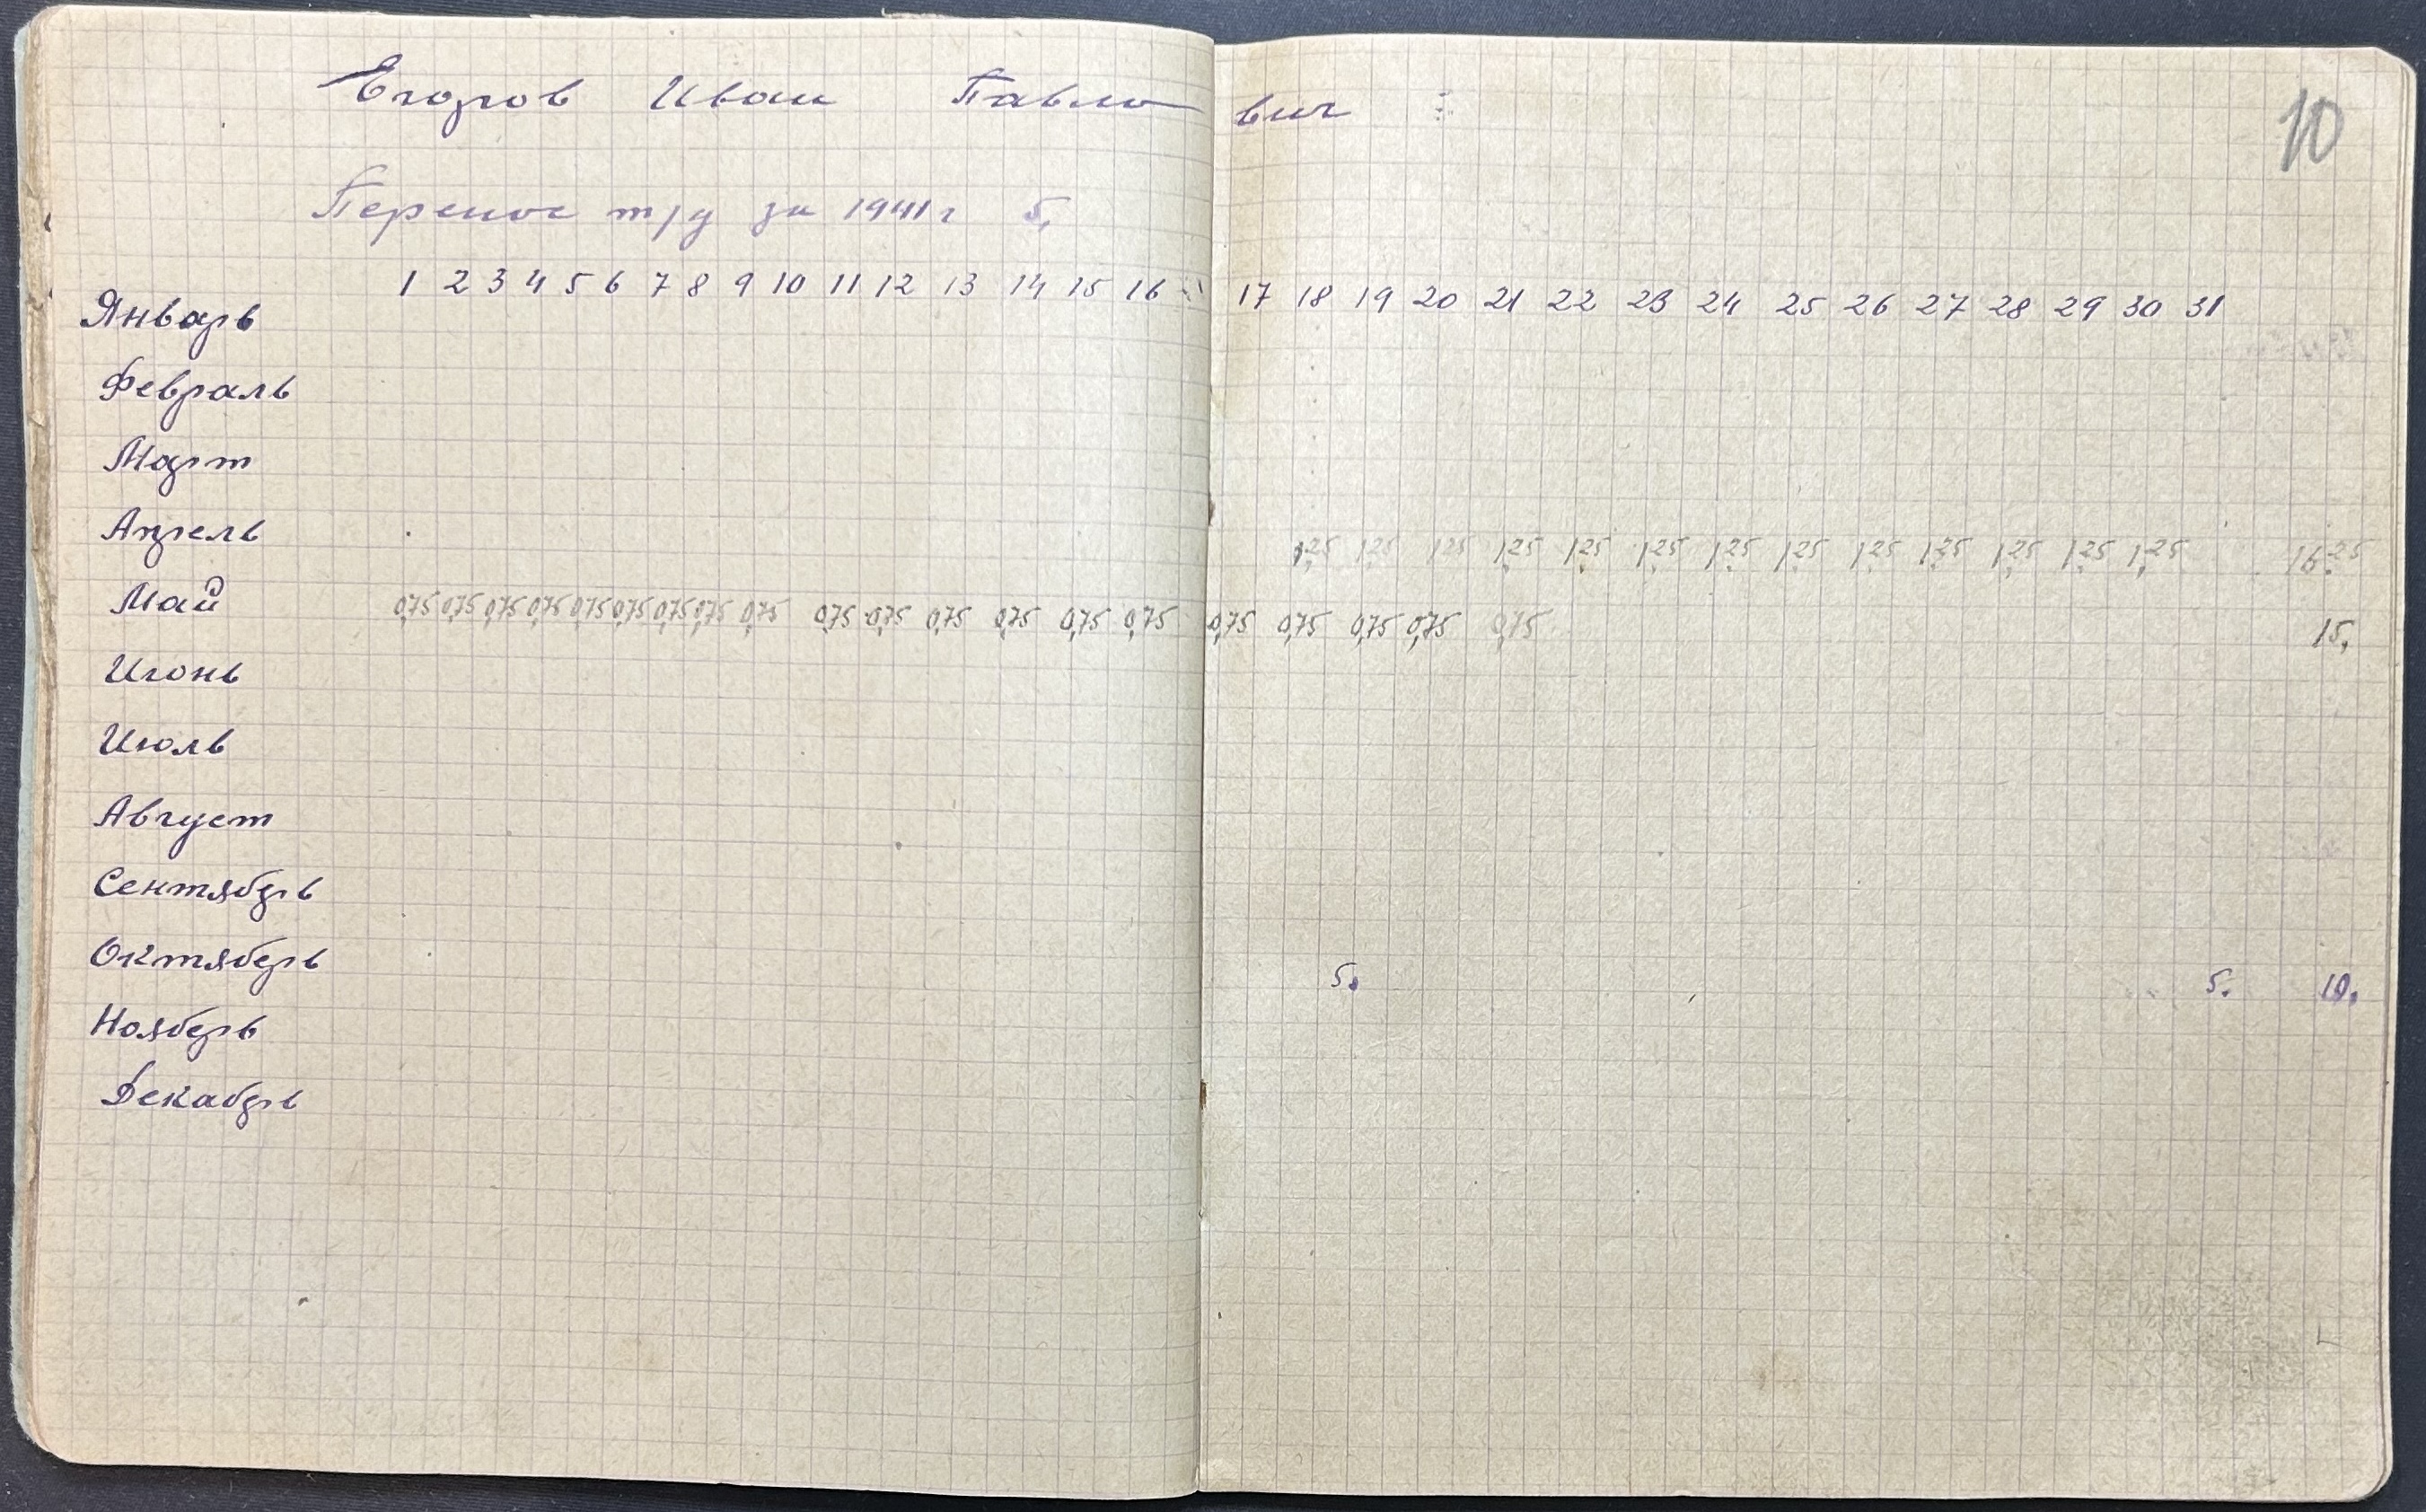 Егоров Иван Павлович
10
Перенос т/д за 1941 г 5.
1 2 3 4 5 6 7 8 9 10 11 12 13 14 15 16 17 18 19 20 21 22 23 24 25 26 27 28 29 30 31
Январь
Февраль
Март
Апрель 1,25 1,25 1,25 1,25 1,25 1,25 1,25 1,25 1,25 1,25 1,25 1,25 1,25 16,25
Май 0,75 0,75 0,75 0,75 0,75 0,75 0,75 0,75 0,75 0,75 0,75 0,75 0,75 0,75 0,75 0,75 0,75 0,75 0,75 0,75 15,
Июнь
Июль
Август
Сентябрь
Октябрь 5. 5. 10.
Ноябрь
Декабрь